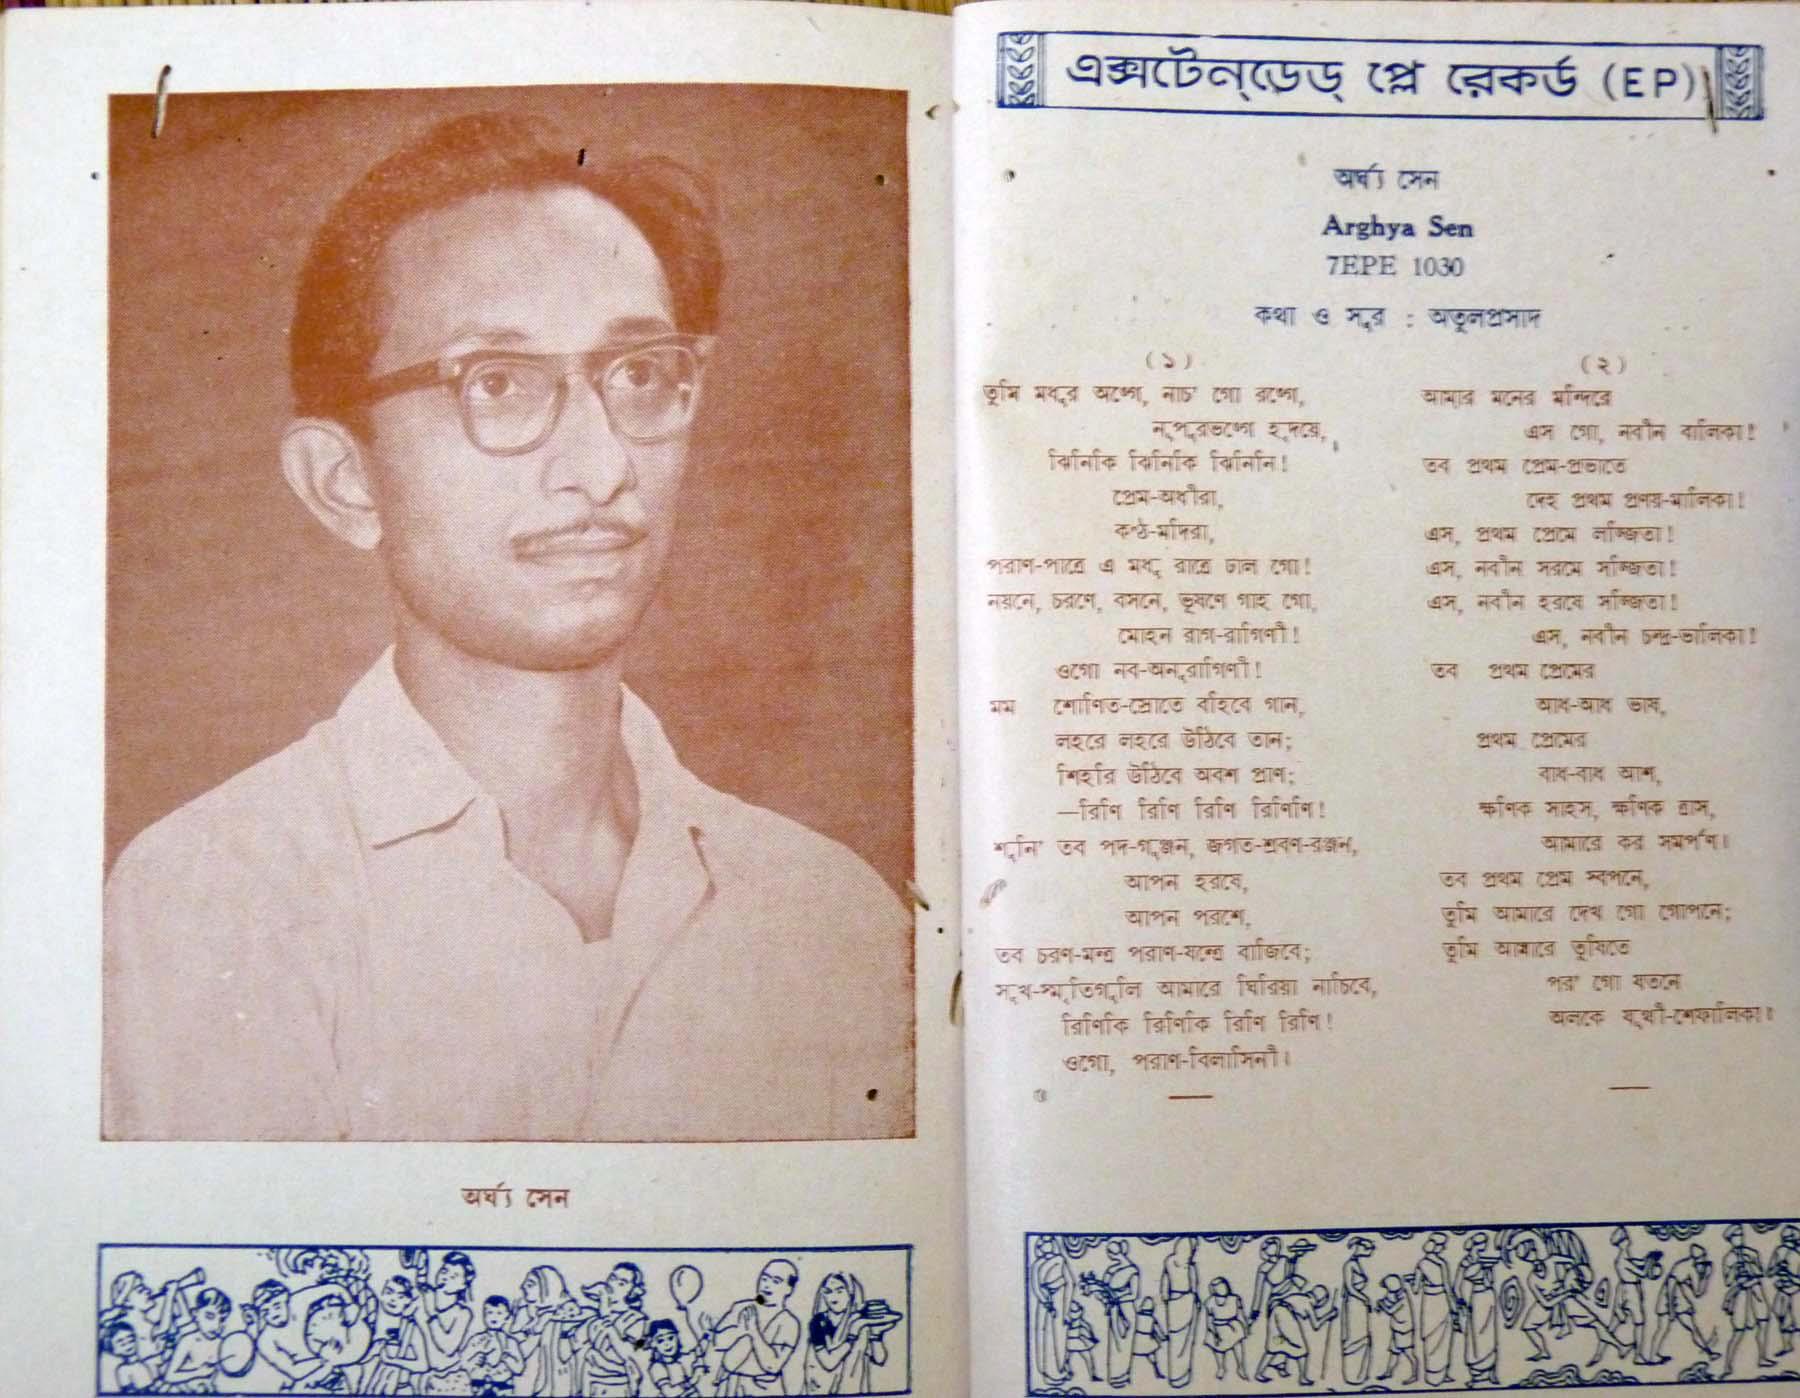 অর্ঘ্য সেন
এক্সটেন্ডেড্ প্লে রেকর্ড (EP)
অর্ঘ্য সেন
Arghya Sen
7EPE 1030
কথা ও সুর : অতুলপ্রসাদ
(১)
তুমি মধুর অঙ্গে, নাচ' গো রঙ্গে,
নূপুরভঙ্গে হৃদয়ে,
ঝিনিকি ঝিনিকি ঝিনিনি!
প্রেম-অধীরা,
কণ্ঠ-মদিরা,
পরাণ-পাত্রে এ মধু রাত্রে ঢাল গো!
নয়নে, চরণে, বসনে, ভূষণে গাহ গো,
মোহন রাগ-রাগিণী!
ওগো নব-অনুরাগিণী!
মম শোণিত-স্রোতে বহিবে গান,
লহরে লহরে উঠিবে তান;
শিহরি উঠিবে অবশ প্রাণ;
—রিণি রিণি রিণি রিণিণি!
শুনি' তব পদ-গুঞ্জন, জগত-শ্রবণ-রঞ্জন,
আপন হরষে,
আপন পরশে,
তব চরণ-মন্ত্র পরাণ-যন্ত্রে বাজিবে;
সুখ-স্মৃতিগুলি আমারে ঘিরিয়া নাচিবে,
রিণিকি রিণিকি রিণি রিণি!
ওগো, পরাণ-বিলাসিনী।
(২)
আমার মনের মন্দিরে
এস গো, নবীন বালিকা!
তব প্রথম প্রেম-প্রভাতে
দেহ প্রথম প্রণয়-মালিকা!
এস, প্রথম প্রেমে লজ্জিতা!
এস, নবীন সরমে সজ্জিতা!
এস, নবীন হরষে সজ্জিতা!
এস, নবীন চন্দ্র-ভালিকা!
তব প্রথম প্রেমের
আধ-আধ ভাষ,
প্রথম প্রেমের
বাধ-বাধ আশ,
ক্ষণিক সাহস, ক্ষণিক ত্রাস,
আমারে কর সমর্পণ।
তব প্রথম প্রেম স্বপনে,
তুমি আমারে দেখ গো গোপনে;
তুমি আমারে তুষিতে
পর' গো যতনে
অলকে যূথী-শেফালিকা।